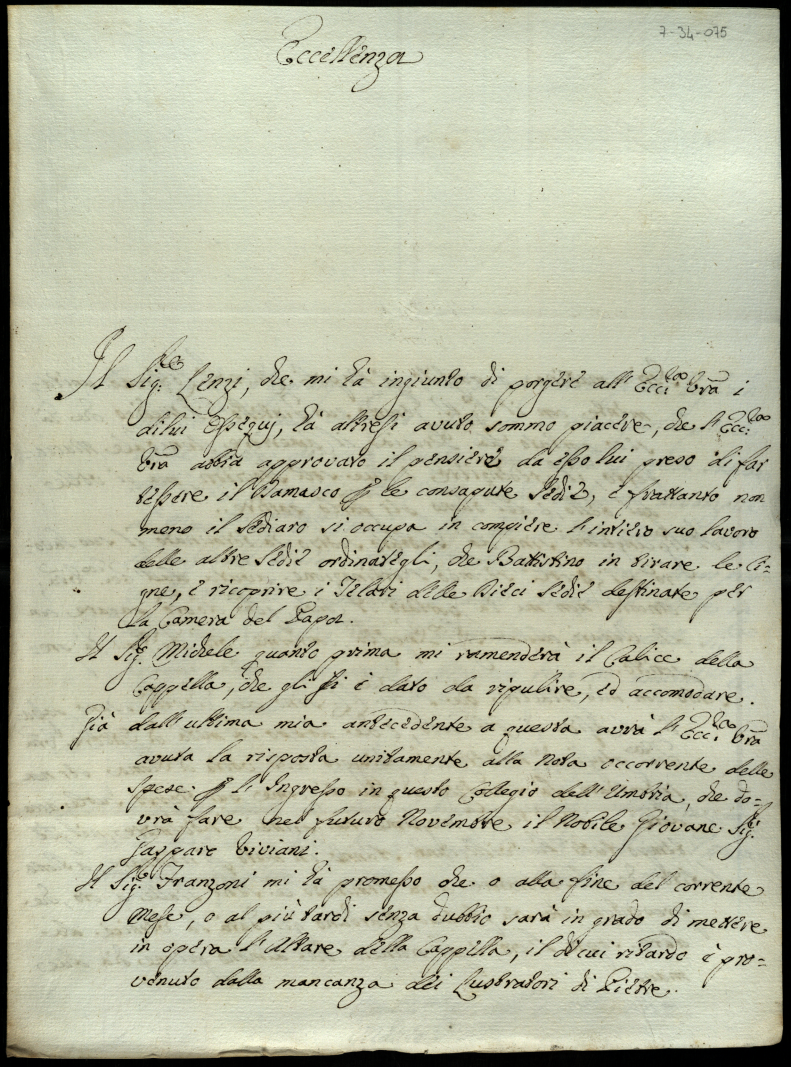 7-34-075
Eccellenza
Il Sig.re Lenzi, che mi hà ingiunto di porgere all' Ecc:za Vrã i
dilui ossequj, hà altresi avuto sommo piacere, che l' Ecc:za
Vrã abbia approvato il pensiere da esso lui preso di far
tessere il Damasco p le consapute Sedie, e frattanto non
meno il Sediaro si occupa in compiere l'intiero suo lavoro
delle altre Sedie ordinategli, che Battistino in tirare le Ci-
gne, e ricoprire i Telari delle Dieci Sedie destinate per
la Camera del Papa.
Il Sig.re Michele quanto prima mi ramenderà il Calice della
Cappella, che gli si è dato da ripulire, ed accomodare.
Già dall' ultima mia antecedente a questa avrà l' Ecc:za Vrã
avuta la risposta unitamente alla Nota occorrente delle
spese p l' Ingresso in questo Collegio dell' Umbria, che do-
vrà fare nel futuro Novembre il Nobile Giovane Sig.
Gasparo Viviani.
Il Sig.re Franzoni mi hà promesso che o alla fine del corrente
Mese, o al più tardi senza dubbio sarà in grado di mettere
in opera l' Altare della Cappella, il di cui ritardo è pro-
venuto dalla mancanza dei Lustratori di Pietre.